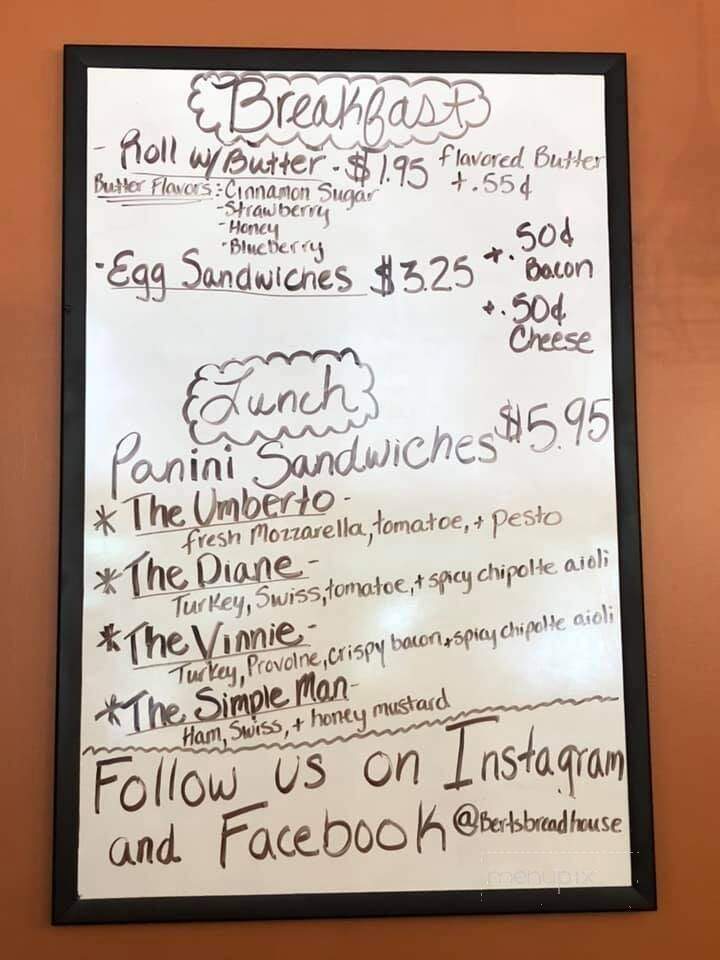 Breakfast
- Roll w/ Butter - $1.95 flavored Butter
+.55¢
Butter Flavors: - Cinnamon Sugar
- Strawberry
- Honey
- Blueberry
- Egg Sandwiches $3.25 +.50¢
Bacon
+.50¢
Cheese
Lunch
Panini Sandwiches $5.95
* The Umberto -
fresh Mozzarella, tomatoe, + pesto
* The Diane -
Turkey, Swiss, tomatoe, + spicy chipolte aioli
* The Vinnie -
Turkey, Provolne, crispy bacon, + spicy chipolte aioli
* The Simple Man -
Ham, Swiss, + honey mustard
Follow us on Instagram
and Facebook @Bertsbreadhouse
menupix